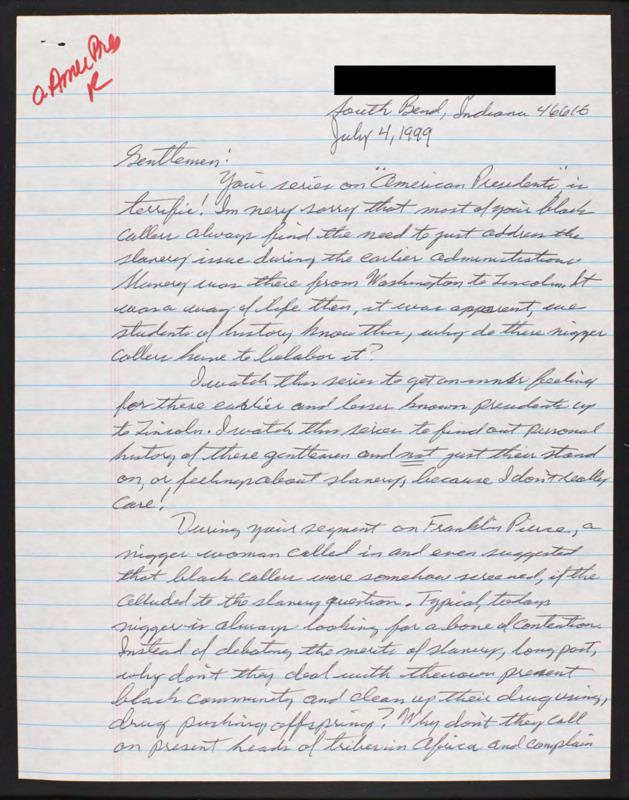 a Amer Pres
R
South Bend, Indiana 46616
July 4, 1999
Gentlemen:
Your series on "American Presidents" is
terrific! Im very sorry that most of your black
callers always find the need to just address the
slavery issue during the earlier administrations
Slavery was there from Washington to Lincoln. It
was a way of life then, it was apparent, we
students of history know this, why do these nigger
callers have to belabor it?
I watch this series to get an inner feeling
for these earlier and lesser known presidents up
to Lincoln. I watch this series to find out personal
history of these gentlemen and not just their stand
on, or feelings about slavery, because I don't really
care!
During your segment on Franklin Pierce, a
nigger woman called in and even suggested
that black callers were somehow screened, if the
alluded to the slavery question. Typical, todays
nigger is always looking for a bone of contention.
Instead of debating the merits of slavery, long past,
why don't they deal with their own present
black community and clean up their drug using,
drug pushing offspring? Why don't they call
on present heads of tribes in Africa and complain